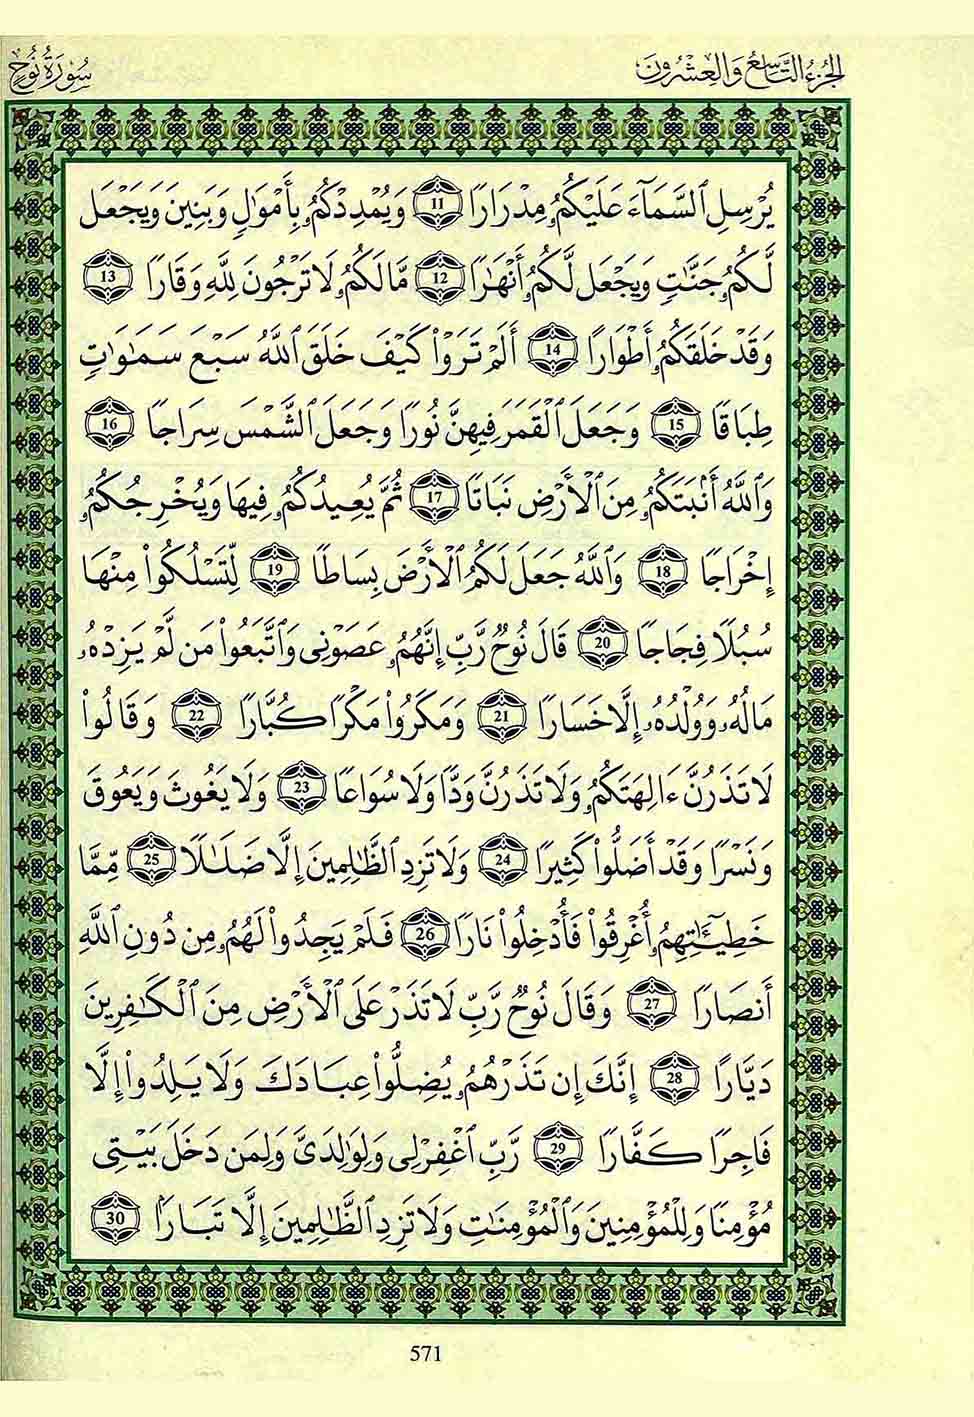 الجزء التاسع والعشرون
سورة نوح
يُرْسِلِ ٱلسَّمَآءَ عَلَيْكُمُۥ مِدْرَارًا 11 وَيُمْدِدْكُمُۥ بِأَمْوَٰلٍ وَبَنِينَ وَيَجْعَل
لَّكُمُۥ جَنَّٰتٍ وَيَجْعَل لَّكُمُۥ أَنْهَٰرًا 12 مَّا لَكُمُۥ لَا تَرْجُونَ لِلَّهِ وَقَارًا 13
وَقَدْ خَلَقَكُمُۥ أَطْوَارًا 14 أَلَمْ تَرَوْا۟ كَيْفَ خَلَقَ ٱللَّهُ سَبْعَ سَمَٰوَٰتٍ
طِبَاقًا 15 وَجَعَلَ ٱلْقَمَرَ فِيهِنَّ نُورًا وَجَعَلَ ٱلشَّمْسَ سِرَاجًا 16
وَٱللَّهُ أَنۢبَتَكُمُۥ مِنَ ٱلْأَرْضِ نَبَاتًا 17 ثُمَّ يُعِيدُكُمُۥ فِيهَا وَيُخْرِجُكُمُۥ
إِخْرَاجًا 18 وَٱللَّهُ جَعَلَ لَكُمُ ٱلْأَرْضَ بِسَاطًا 19 لِّتَسْلُكُوا۟ مِنْهَا
سُبُلًا فِجَاجًا 20 قَالَ نُوحٌ رَّبِّ إِنَّهُمُۥ عَصَوْنِى وَٱتَّبَعُوا۟ مَن لَّمْ يَزِدْهُۥ
مَالُهُۥ وَوُلْدُهُۥ إِلَّا خَسَارًا 21 وَمَكَرُوا۟ مَكْرًا كُبَّارًا 22 وَقَالُوا۟
لَا تَذَرُنَّ ءَالِهَتَكُمُۥ وَلَا تَذَرُنَّ وَدًّا وَلَا سُوَاعًا 23 وَلَا يَغُوثَ وَيَعُوقَ
وَنَسْرًا وَقَدْ أَضَلُّوا۟ كَثِيرًا 24 وَلَا تَزِدِ ٱلظَّٰلِمِينَ إِلَّا ضَلَٰلًا 25 مِّمَّا
خَطِيٓـَٰٔتِهِمُۥ أُغْرِقُوا۟ فَأُدْخِلُوا۟ نَارًا 26 فَلَمْ يَجِدُوا۟ لَهُمُۥ مِن دُونِ ٱللَّهِ
أَنصَارًا 27 وَقَالَ نُوحٌ رَّبِّ لَا تَذَرْ عَلَى ٱلْأَرْضِ مِنَ ٱلْكَٰفِرِينَ
دَيَّارًا 28 إِنَّكَ إِن تَذَرْهُمُۥ يُضِلُّوا۟ عِبَادَكَ وَلَا يَلِدُوا۟ إِلَّا
فَاجِرًا كَفَّارًا 29 رَّبِّ ٱغْفِرْ لِى وَلِوَٰلِدَىَّ وَلِمَن دَخَلَ بَيْتِى
مُؤْمِنًا وَلِلْمُؤْمِنِينَ وَٱلْمُؤْمِنَٰتِ وَلَا تَزِدِ ٱلظَّٰلِمِينَ إِلَّا تَبَارًۢا 30
571